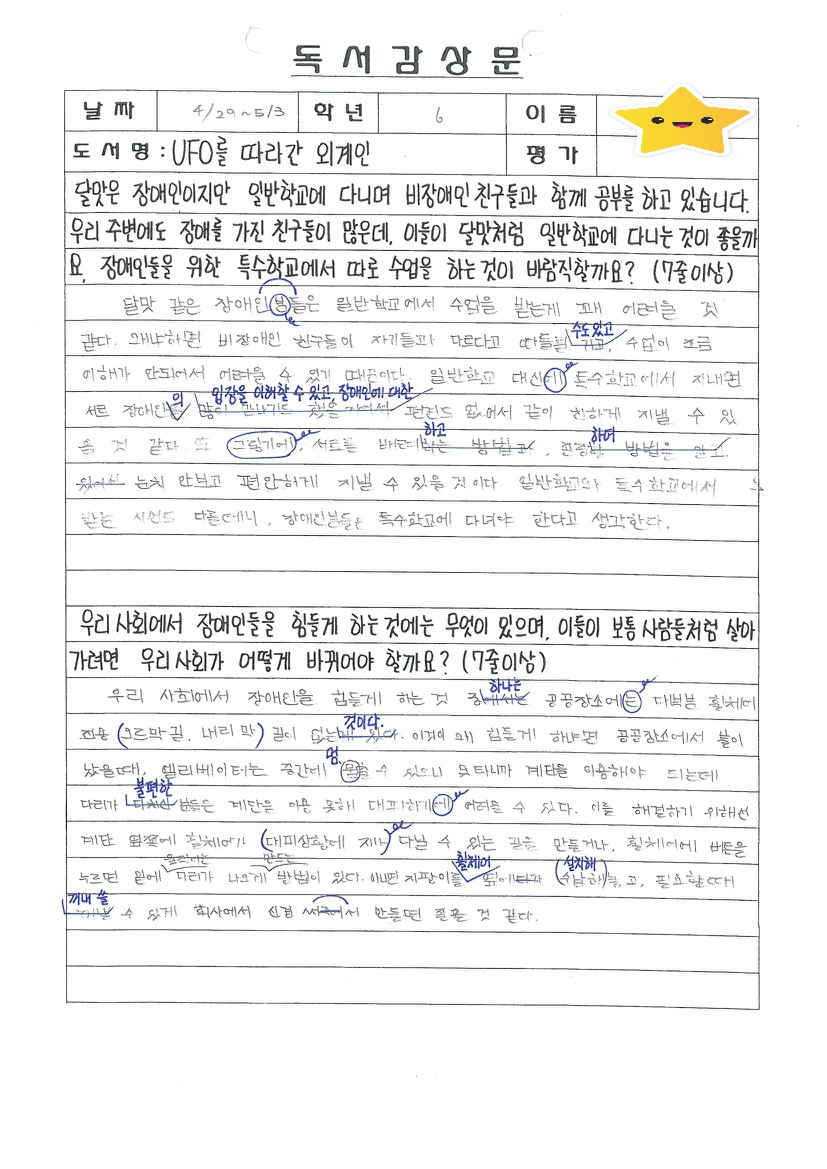 독서감상문
날짜 4/29~5/3 학년 6 이름
도서명: UFO를 따라간 외계인 평가
달맛은 장애인이지만 일반학교에 다니며 비장애인 친구들과 함께 공부를 하고 있습니다.
우리 주변에도 장애를 가진 친구들이 많은데, 이들이 달맛처럼 일반학교에 다니는 것이 좋을까
요, 장애인들을 위한 특수학교에서 따로 수업을 하는 것이 바람직할까요? (7줄이상)
달맛 같은 장애인분들은 일반학교에서 수업을 받는게 꽤 어려울 것
수도 있고
같다. 왜냐하면 비장애인 친구들이 자기들과 다르다고 따돌릴 수업이 조금
이해가 안되어서 어려울 수 있기 때문이다. 일반학교 대신에 특수학교에서 지내면
의 입장을 이해할 수 있고, 장애인에 대한
서로 장애인들 많이 만나기도 했을 편견도 없어서 같이 친하게 지낼 수 있
하고 하여
을 것 같다. 또 그렇기에, 서로를 배려하는 방법과, 존중 방법을 알고
있어서 눈치 안보고 편안하게 지낼 수 있을 것이다. 일반학교와 특수학교에서
받는 시선도 다를테니, 장애인분들은 특수학교에 다녀야 한다고 생각한다.
우리 사회에서 장애인들을 힘들게 하는 것에는 무엇이 있으며, 이들이 보통 사람들처럼 살아
가려면 우리 사회가 어떻게 바뀌어야 할까요? (7줄이상)
하나는
우리 사회에서 장애인을 힘들게 하는 것 중 공공장소에는 대부분 휠체어
것이다.
전용 (오르막길, 내리막) 길이 없는데 있다. 이것이 왜 힘들게 하냐면 공공장소에서 불이
멈
났을때, 엘리베이터는 중간에 수 있으니 못타니까 계단을 이용해야 되는데
불편한
다리가 분들은 계단을 이용 못해 대피하기에 어려울 수 있다. 이를 해결하기 위해선
계단 옆쪽에 휠체어가 (대피상황에 지나) 다닐 수 있는 길을 만들거나, 휠체어에 버튼을
만드는 휠체어 설치해
누르면 밑에 다리가 나오게 방법이 있다. 아니면 지팡이를 옆에 수납해놓고, 필요할때
꺼내 쓸
수 있게 회사에서 신경 써주어서 만들면 좋을 것 같다.